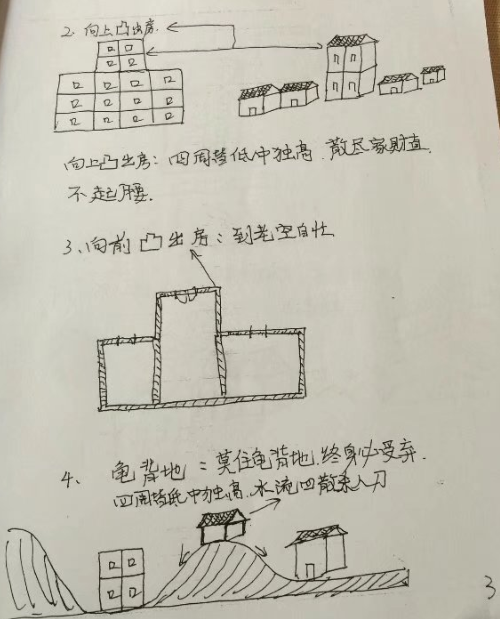 2. 向上凸出房.
向上凸出房：四周皆低中独高.散尽家财直
不起腰.
3、向前凸出房：到老空自忙
4、龟背地：莫住龟背地.终身必受弃.
四周皆低中独高.水流四散杀人刀
3